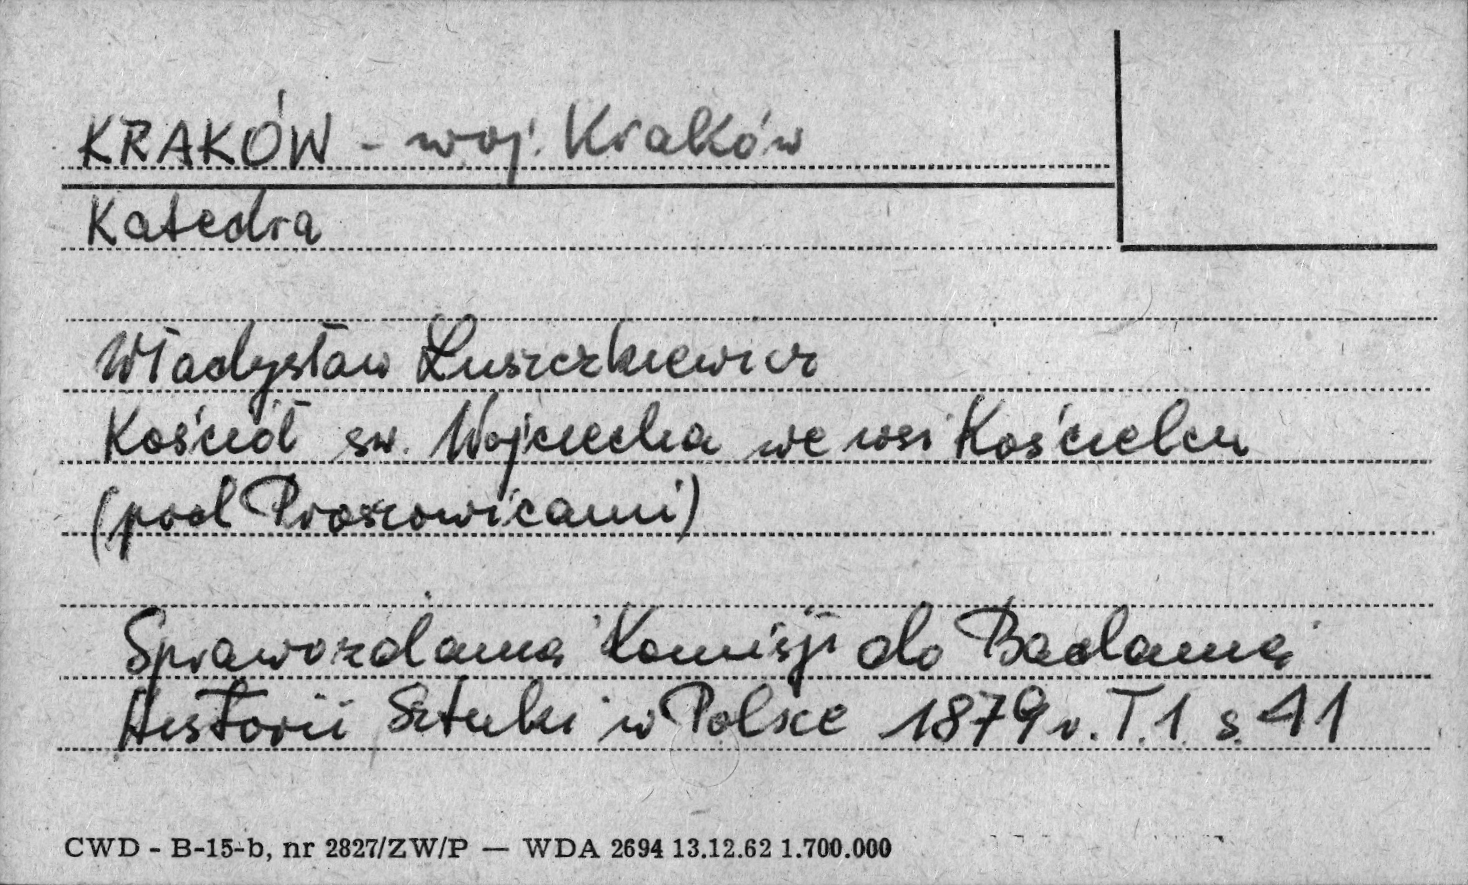 KRAKÓW - woj. Kraków
Katedra
Władysław Łuszczkiewicz
Kościół św. Wojciecha we wsi Kościelcu
(pod Proszowicami)
Sprawozdania Komisji do Badania
Historii Sztuki w Polsce 1879 r. T.1 s. 41
CWD - B-15-b, nr 2827/ZW/P — WDA 2694 13.12.62 1.700.000